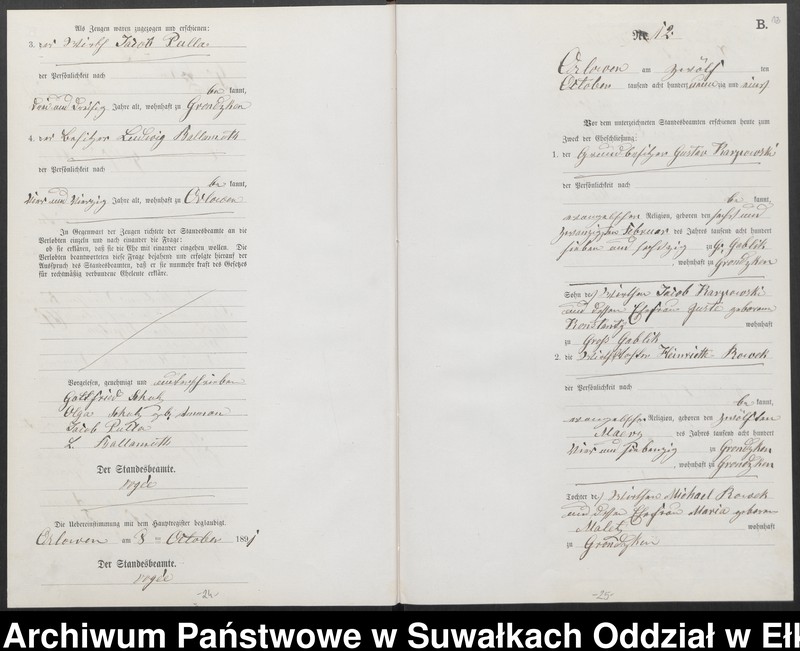 Als Zeugen waren zugezogen und erschienen:
3. der Wirth Jacob Pulla
der Persönlichkeit nach
be kannt,
drei und dreißig Jahre alt, wohnhaft zu Grondzken
4. der Besitzer Ludwig Ballamuth
der Persönlichkeit nach
be kannt,
vier und vierzig Jahre alt, wohnhaft zu Orlowen
In Gegenwart der Zeugen richtete der Standesbeamte an die
Verlobten einzeln und nach einander die Frage:
ob sie erklären, daß sie die Ehe mit einander eingehen wollen. Die
Verlobten beantworteten diese Frage bejahend und erfolgte hierauf der
Ausspruch des Standesbeamten, daß er sie nunmehr kraft des Gesetzes
für rechtmäßig verbundene Eheleute erkläre.
Vorgelesen, genehmigt und unterschrieben
Gottfried Schatz
Olga Schatz geb.
Jacob Pulla
L. Ballamuth
Der Standesbeamte.
Die Uebereinstimmung mit dem Hauptregister beglaubigt.
Orlowen am 8 ten October 1891
Der Standesbeamte.
-24-
B.
№ 12
Orlowen am zwölf ten
October tausend acht hundert neunzig und eins
Vor dem unterzeichneten Standesbeamten erschienen heute zum
Zweck der Eheschließung:
1. der Grundbesitzer Gustav Karpowski
der Persönlichkeit nach
be kannt,
evangelischer Religion, geboren den sechs und
zwanzigsten Februar des Jahres tausend acht hundert
sieben und sechszig zu Gr. Gablik
, wohnhaft zu Grondzken
Sohn des Wirthen Jacob Karpowski
und dessen Ehefrau Juste geborene
wohnhaft
zu Groß Gablik
2. die Wirthstochter Heinriette Borvek
der Persönlichkeit nach
be kannt,
evangelischer Religion, geboren den zwölften
Maerz des Jahres tausend acht hundert
vier und siebenzig zu Grondzken
, wohnhaft zu Grondzken
Tochter des Wirthen Michael Borvek
und dessen Ehefrau Maria geborene
Maletz wohnhaft
zu Grondzken
-25-
Archiwum Państwowe w Suwałkach Oddział w Ełk